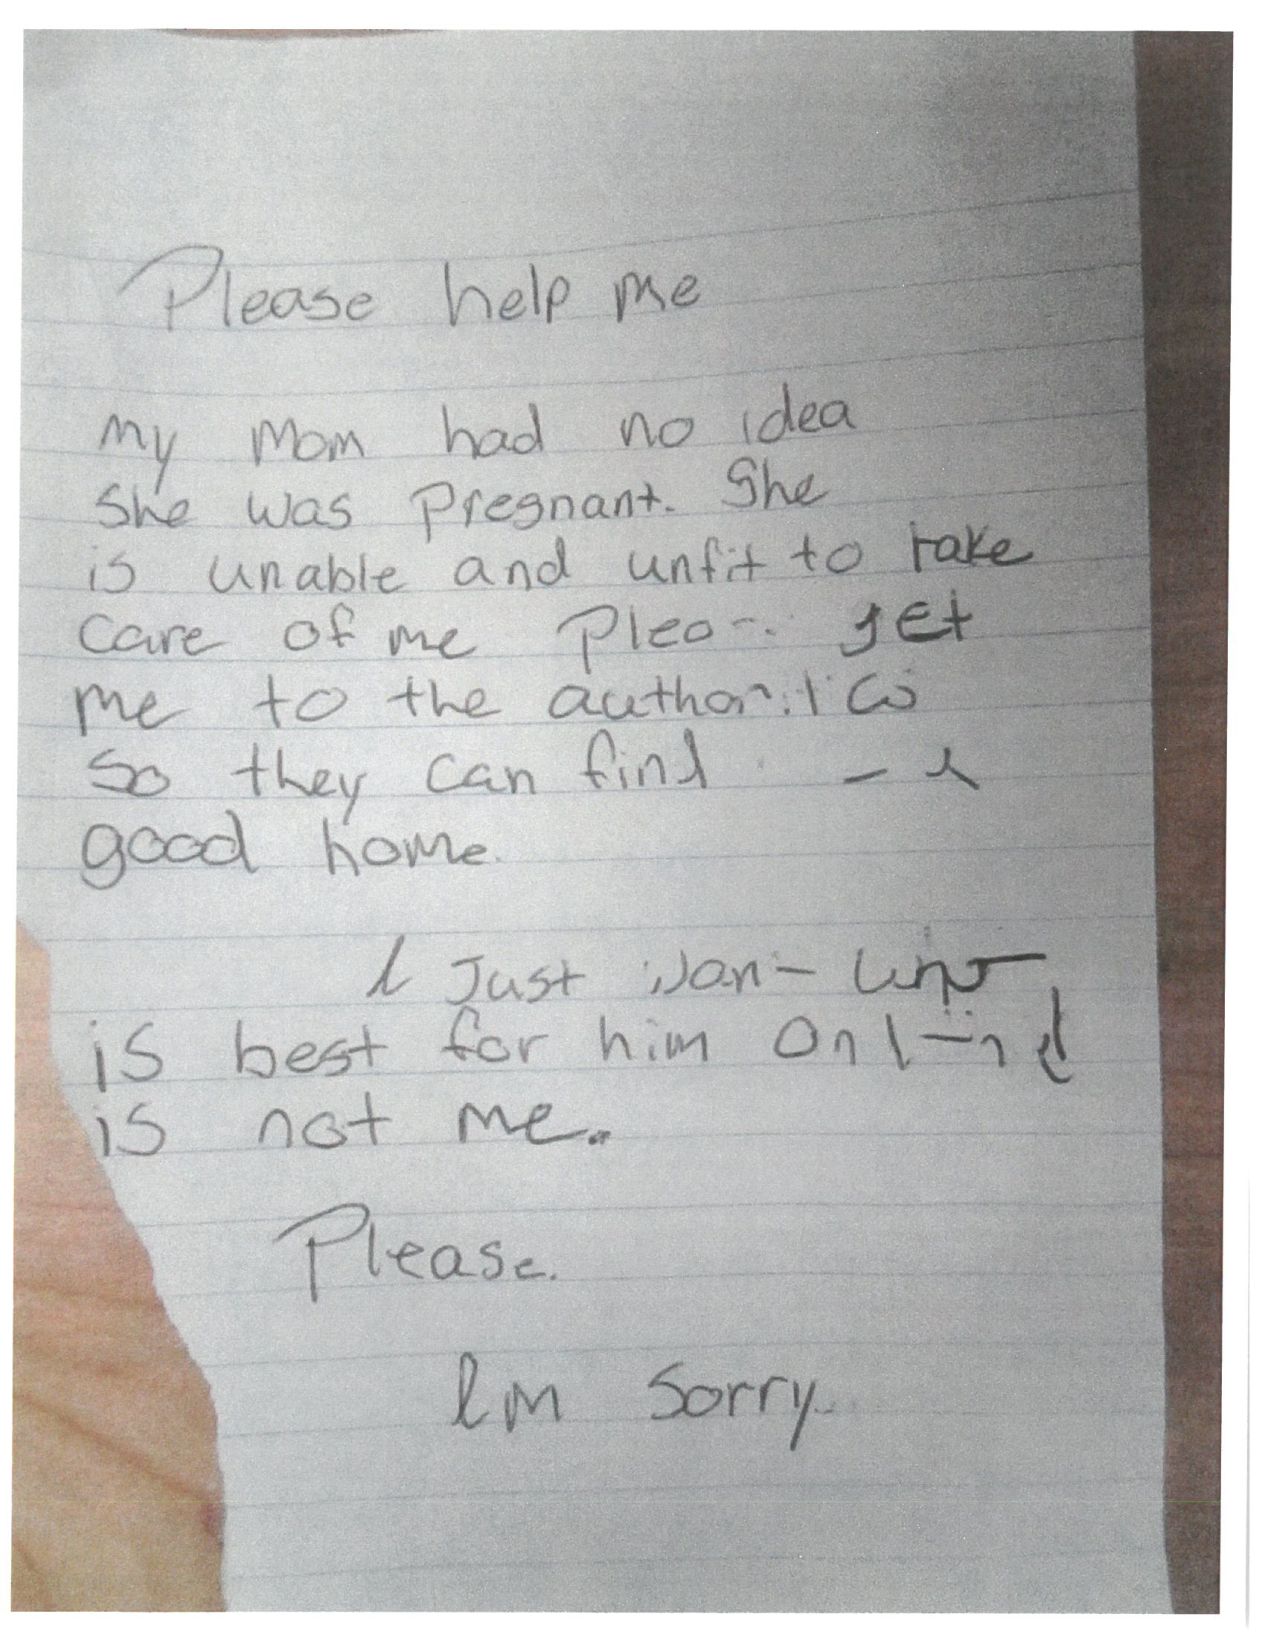 Please help me
my mom had no idea
she was pregnant. She
is unable and unfit to take
care of me get
me to the
so they can find
good home.
I Just
is best for him
is not me..
Please.
Im sorry.